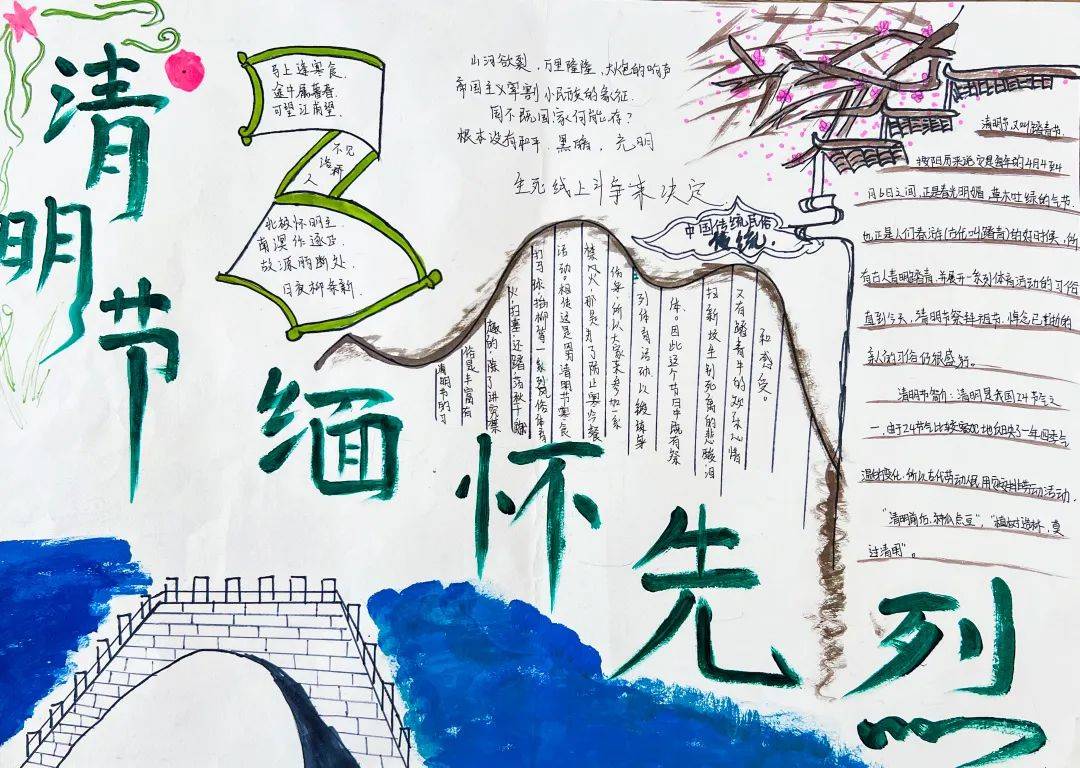 清明节
缅怀先列
马上逢寒食，
途中属暮春，
可望江南望，
不见洛桥
人
北极怀明主，
南溟作逐臣，
故
肠断处，
日夜柳条新，
山河欲裂，万里隆隆，大炮的响声
帝国主义宰割小民族的象征，
国不既国家何能存？
根本没有和平，黑暗，光明
生死线上斗争来决定，
中国传统民俗
传统，
清明节的习
俗是丰富有
趣的，除了讲究禁
火、扫墓，还踏、荡秋千、蹴
打马球、插柳等一系列风俗体育
活动。相传这是因清明节寒食
禁火，那是为了防止寒冷餐
伤身，所以大家来参加一家
列体育活动以锻炼身
体。因此这个节日中既有祭
扫新坟生别死离的悲酸泪
又有踏青中的欢乐心情
和感受。
清明节，又叫踏青节，
按阳历来说，它是每年的4月4至4
月6日之间，正是春光明媚，草木吐绿的气节，
也正是人们春游（古代叫踏青）的好时候，所
有古人清明踏青，并展开一系列体育活动的习俗
直到今天，清明节祭拜祖节，悼念已逝的
亲人的习俗仍很盛行。
清明节简介：清明是我国24节气之
一，由于24节气比较客观地反映了一年四季气
温变化，所以古代劳动人民用它安排劳动活动，
“清明前后，种瓜点豆”，“植树造林，莫
过清明”。